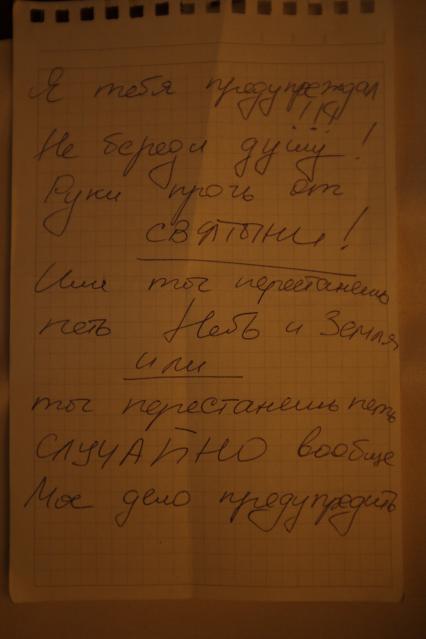 Я тебя предупреждал
!!!
Не береди душу!
Руки прочь от
СВЯТЫНИ!
Или ты перестанешь
петь Небъ и Земля
или
ты перестанешь петь
СЛУЧАЙНО вообще
Мое дело предупредить